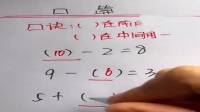 口算
口诀:( )在前
( )在中间用一
(10)-2=8
9-(6)=3
5+(